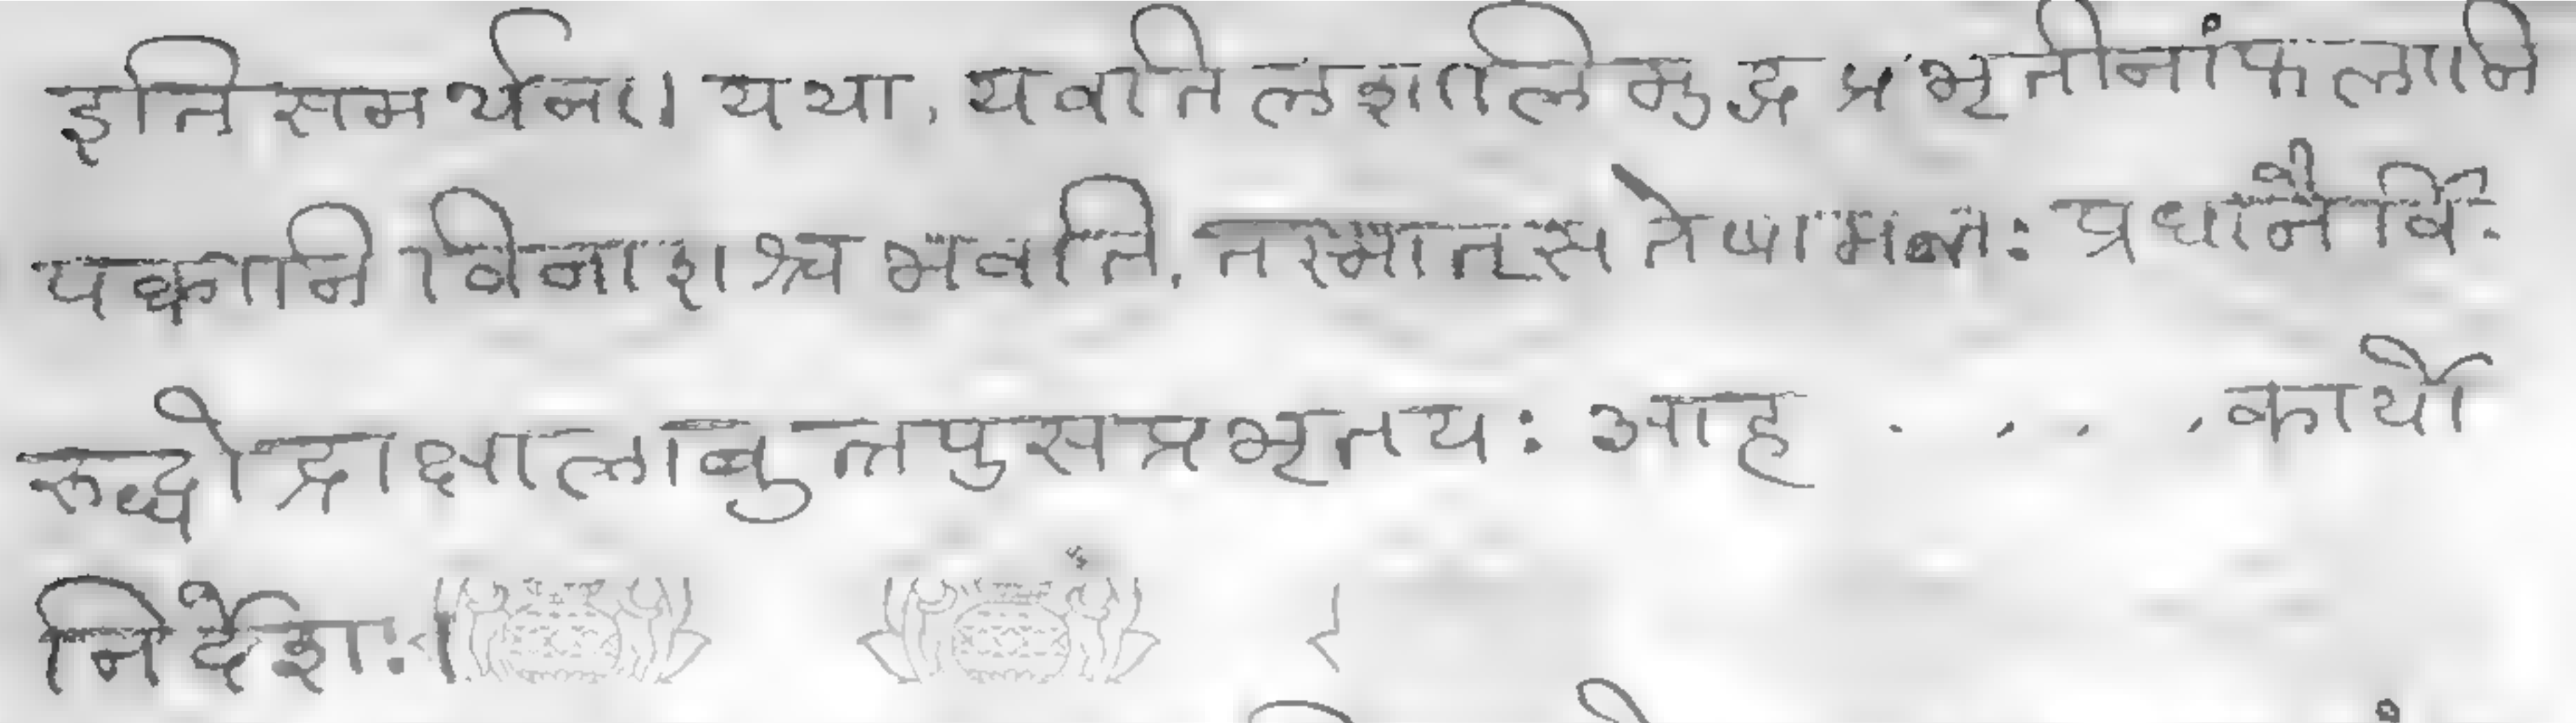 इति समर्थना। यथा, यवतिलशालिमुद्गप्रभृतीनां फलानि
पक्वानि विनाशश्च भवति, तस्मात् स तेषामन्तः प्रधानैर्वि-
रुद्धो द्राक्षालाबुत्रपुसप्रभृतयः आह . . . . कार्यो
निर्देशः।